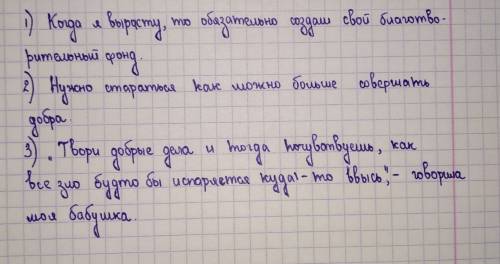 1) Когда я вырасту, то обязательно создам свой благотво-
рительный фонд.
2) Нужно стараться как можно больше совершать
добра.
3) „Твори добрые дела и тогда почувствуешь, как
все зло будто бы испаряется куда-то ввысь", - говорила
моя бабушка.